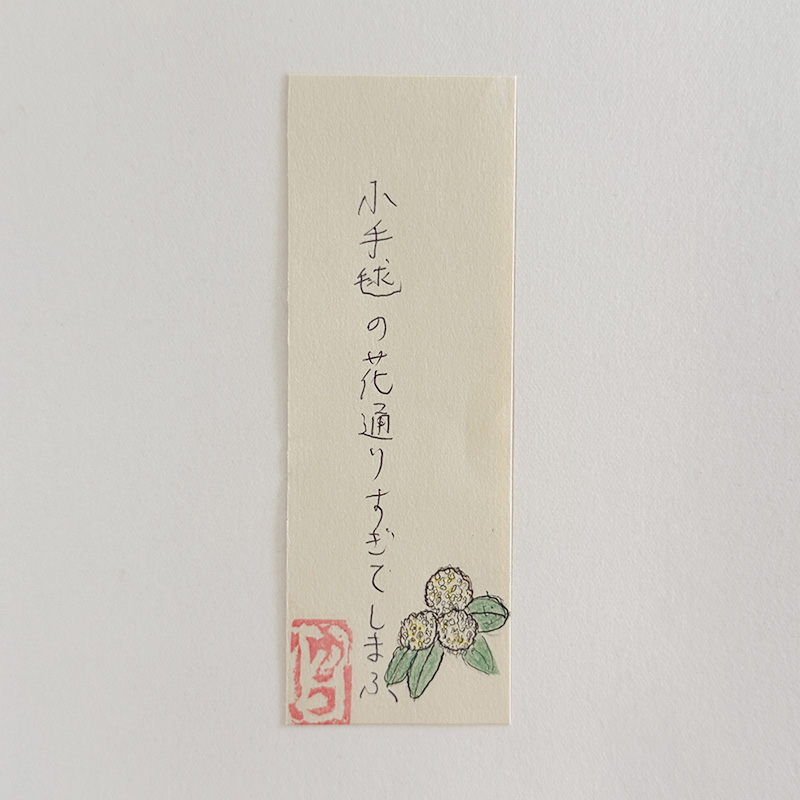 小手毬の花通りすぎてしまふ